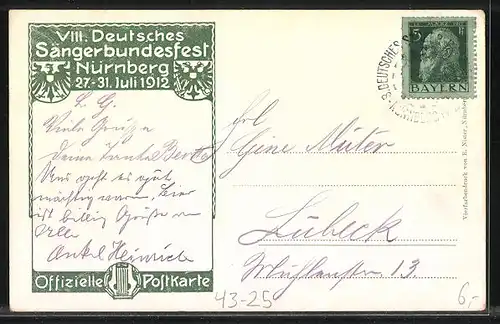 VIII. Deutsches
Sängerbundesfest
Nürnberg
27-31. Juli 1912
L. G.
Viele Grüße
Deine Tante Berta
Uns geht es gut
ist billig Grüße an
Alle
Onkel Heinrich
Offizielle Postkarte
5 Pf
BAYERN
DEUTSCHES
Frl
Lübeck
13.
Vierfarbendruck von E. Nister, Nürnberg
43-25
6,-